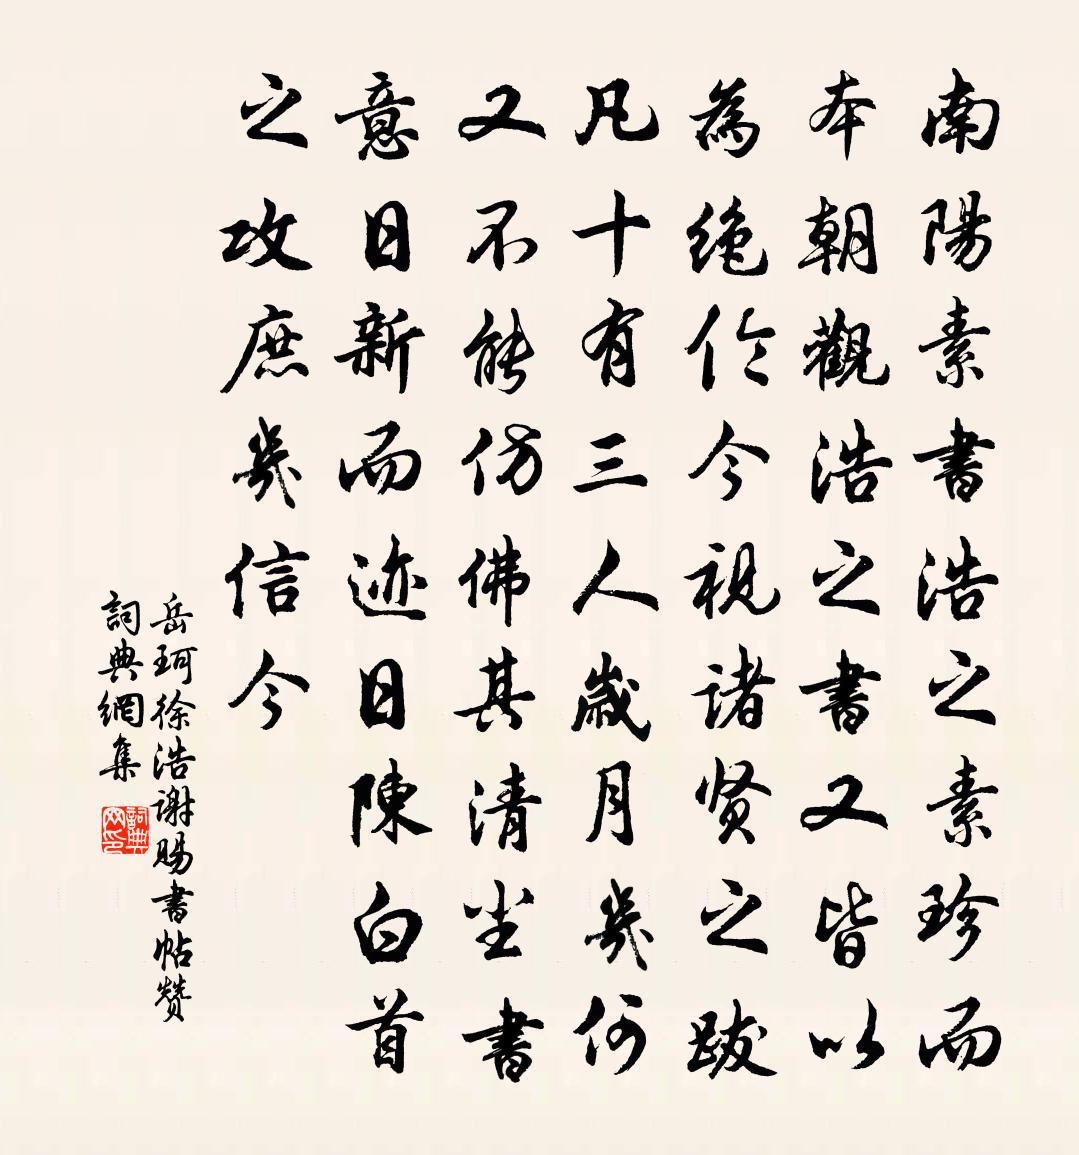 南陽素書浩之素珍而
本朝觀浩之書又皆以
為絶伦今視諸贤之跋
凡十有三人歲月幾何
又不能仿佛其清坐書
意日新而迹日陳白首
之攻庶幾信今
岳珂徐浩謝賜書帖贊
詞典網集
詞典网印